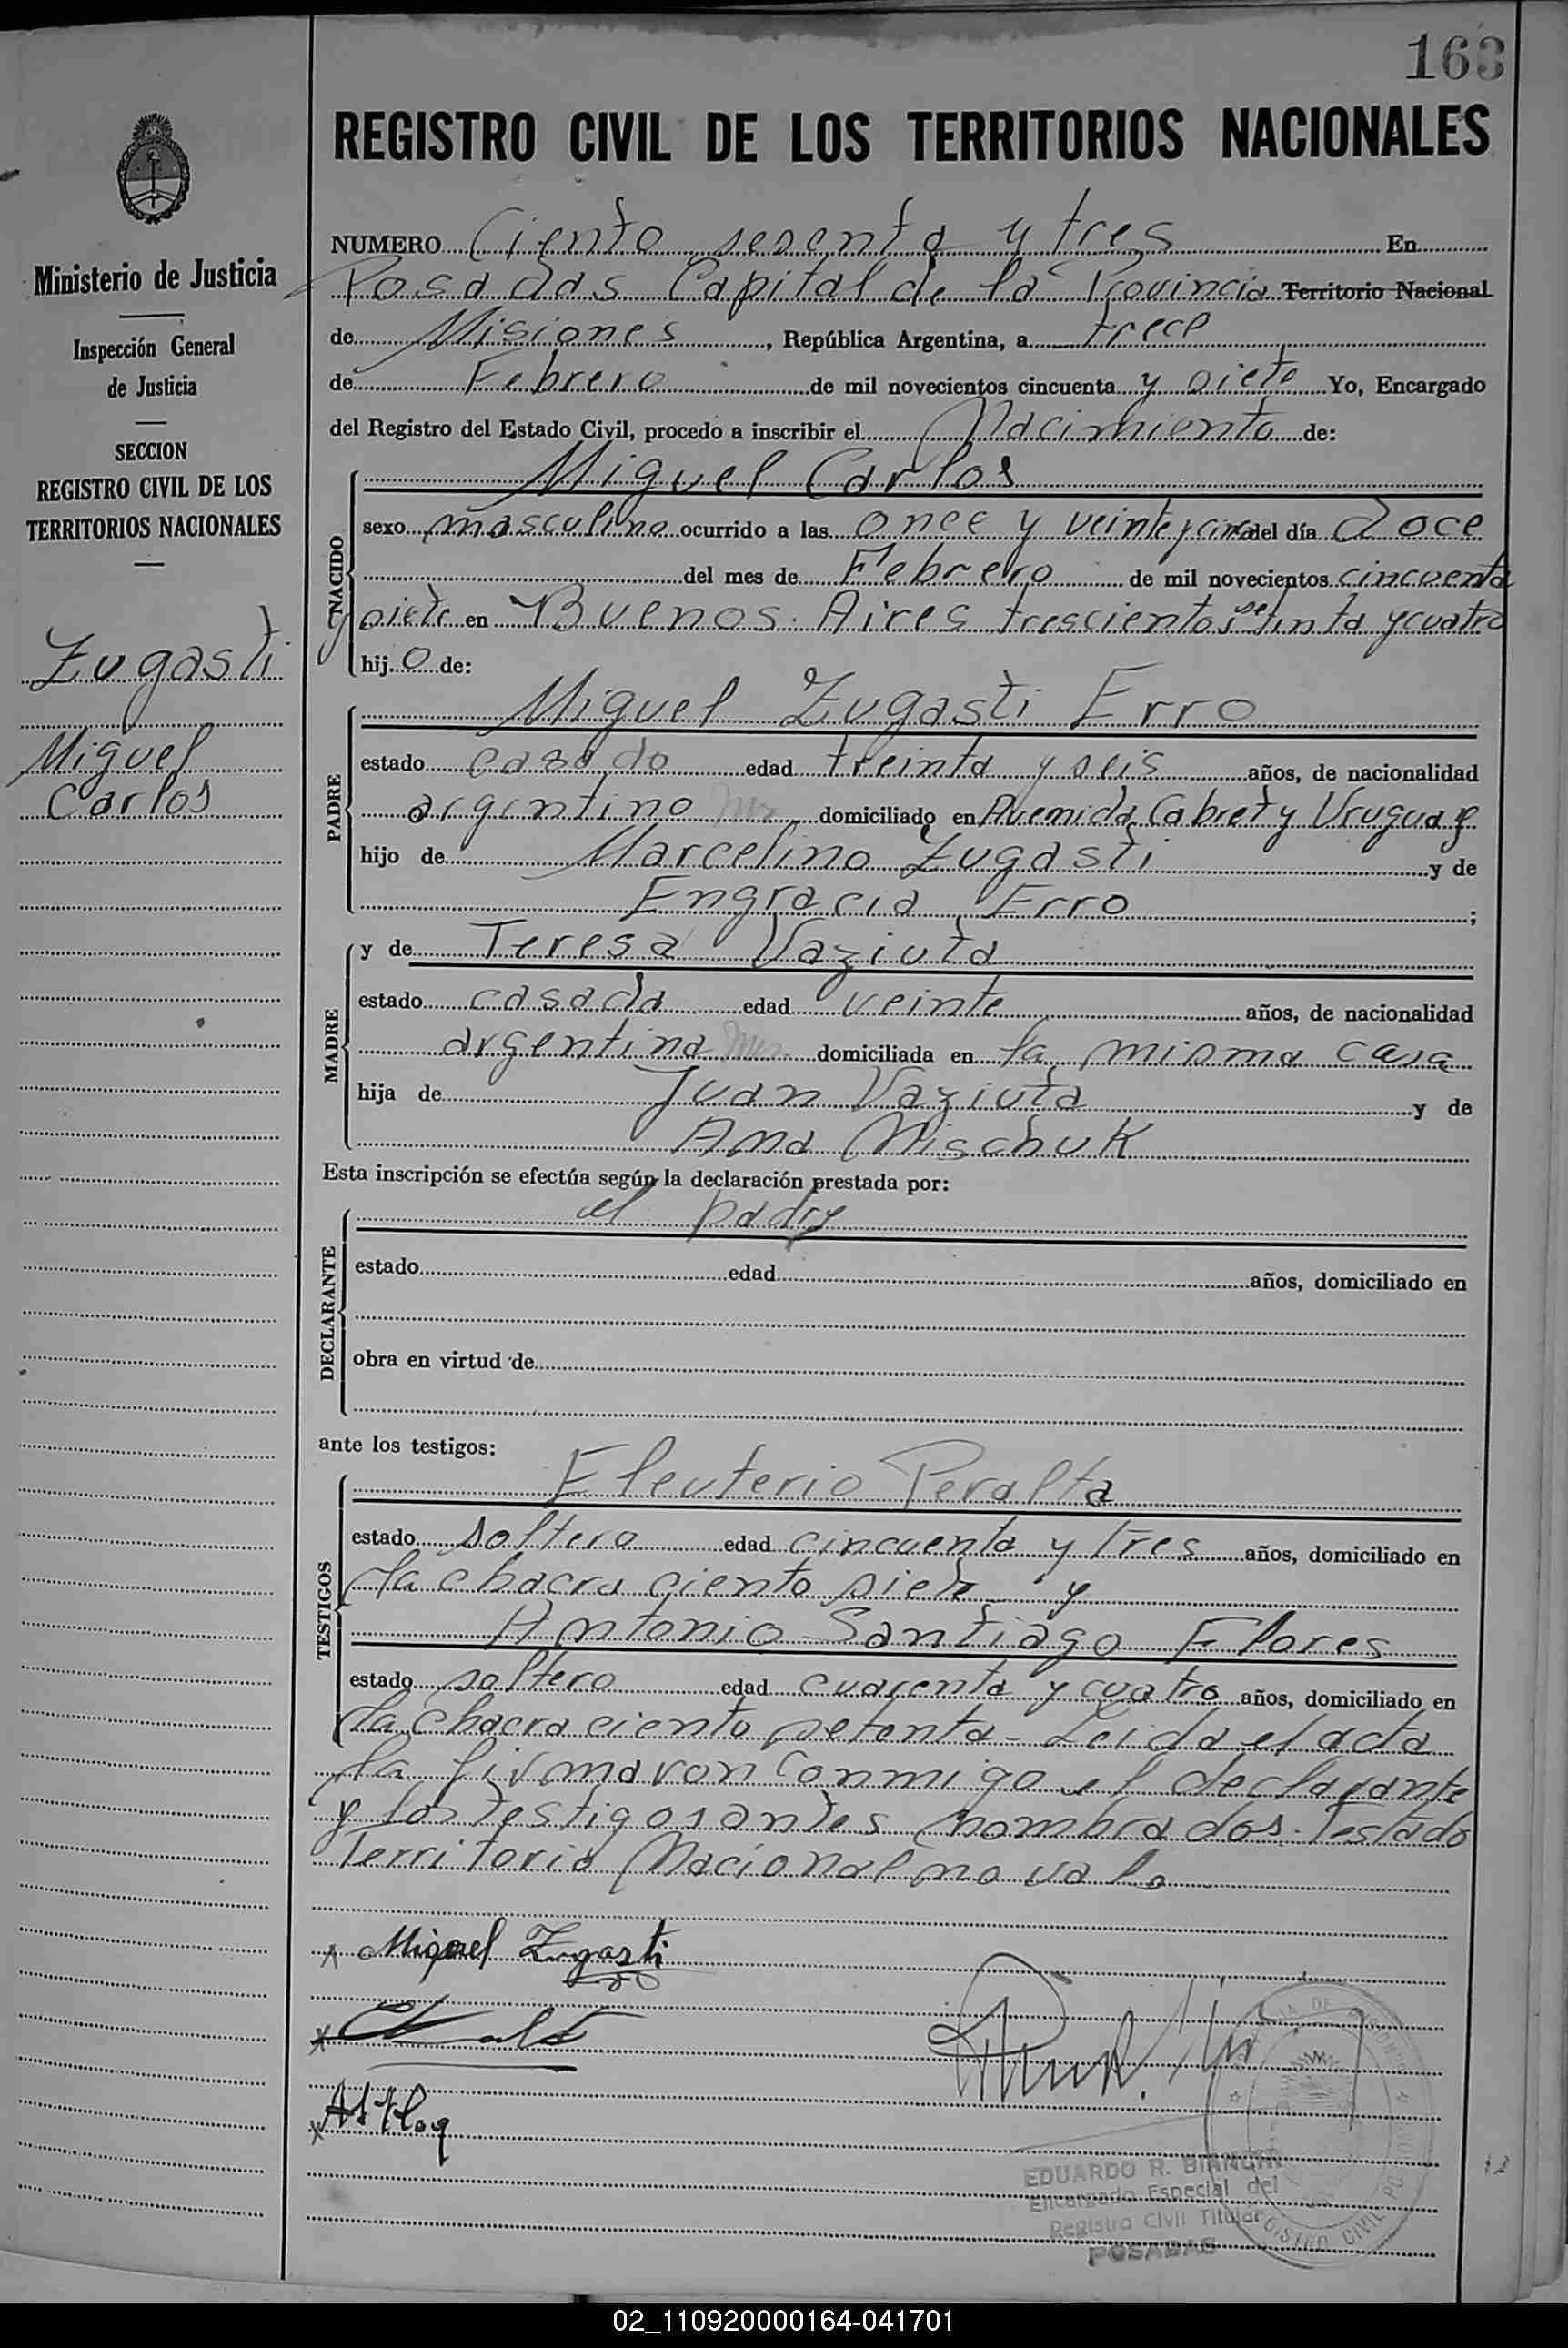 163
REGISTRO CIVIL DE LOS TERRITORIOS NACIONALES
Ministerio de Justicia
Inspección General
de Justicia
SECCION
REGISTRO CIVIL DE LOS
TERRITORIOS NACIONALES
Zugasti
Miguel
Carlos
NUMERO Ciento sesenta y tres En
Posadas Capital de la Provincia Territorio Nacional
de Misiones, República Argentina, a trece
de Febrero de mil novecientos cincuenta y siete Yo, Encargado
del Registro del Estado Civil, procedo a inscribir el Nacimiento de:
NACIDO
Miguel Carlos
sexo masculino ocurrido a las once y veinte y cinco del día doce
del mes de Febrero de mil novecientos cincuenta
y siete en Buenos Aires trescientos setenta y cuatro
hijo de:
PADRE
Miguel Zugasti Erro
estado casado edad treinta y seis años, de nacionalidad
argentino domiciliado en Avenida Cabret y Uruguay
hijo de Marcelino Zugasti y de
Engracia Erro;
MADRE
y de Teresa Vaziuta
estado casada edad veinte años, de nacionalidad
argentina domiciliada en la misma casa
hija de Juan Vaziuta y de
Ana Nischuk
Esta inscripción se efectúa según la declaración prestada por:
DECLARANTE
el padre
estado edad años, domiciliado en
obra en virtud de
ante los testigos:
TESTIGOS
Eleuterio Peralta
estado soltero edad cincuenta y tres años, domiciliado en
la chacra ciento siete y
Antonio Santiago Flores
estado soltero edad cuarenta y cuatro años, domiciliado en
la chacra ciento setenta - Leida el acta
la firmaron conmigo el declarante
y los testigos antes nombrados. Testado
Territorio Nacional no vale
x Miguel Zugasti
x
x
EDUARDO R. BIANCHI
Encargado Especial del
Registro Civil Titular
POSADAS
REGISTRO CIVIL
02_110920000164-041701